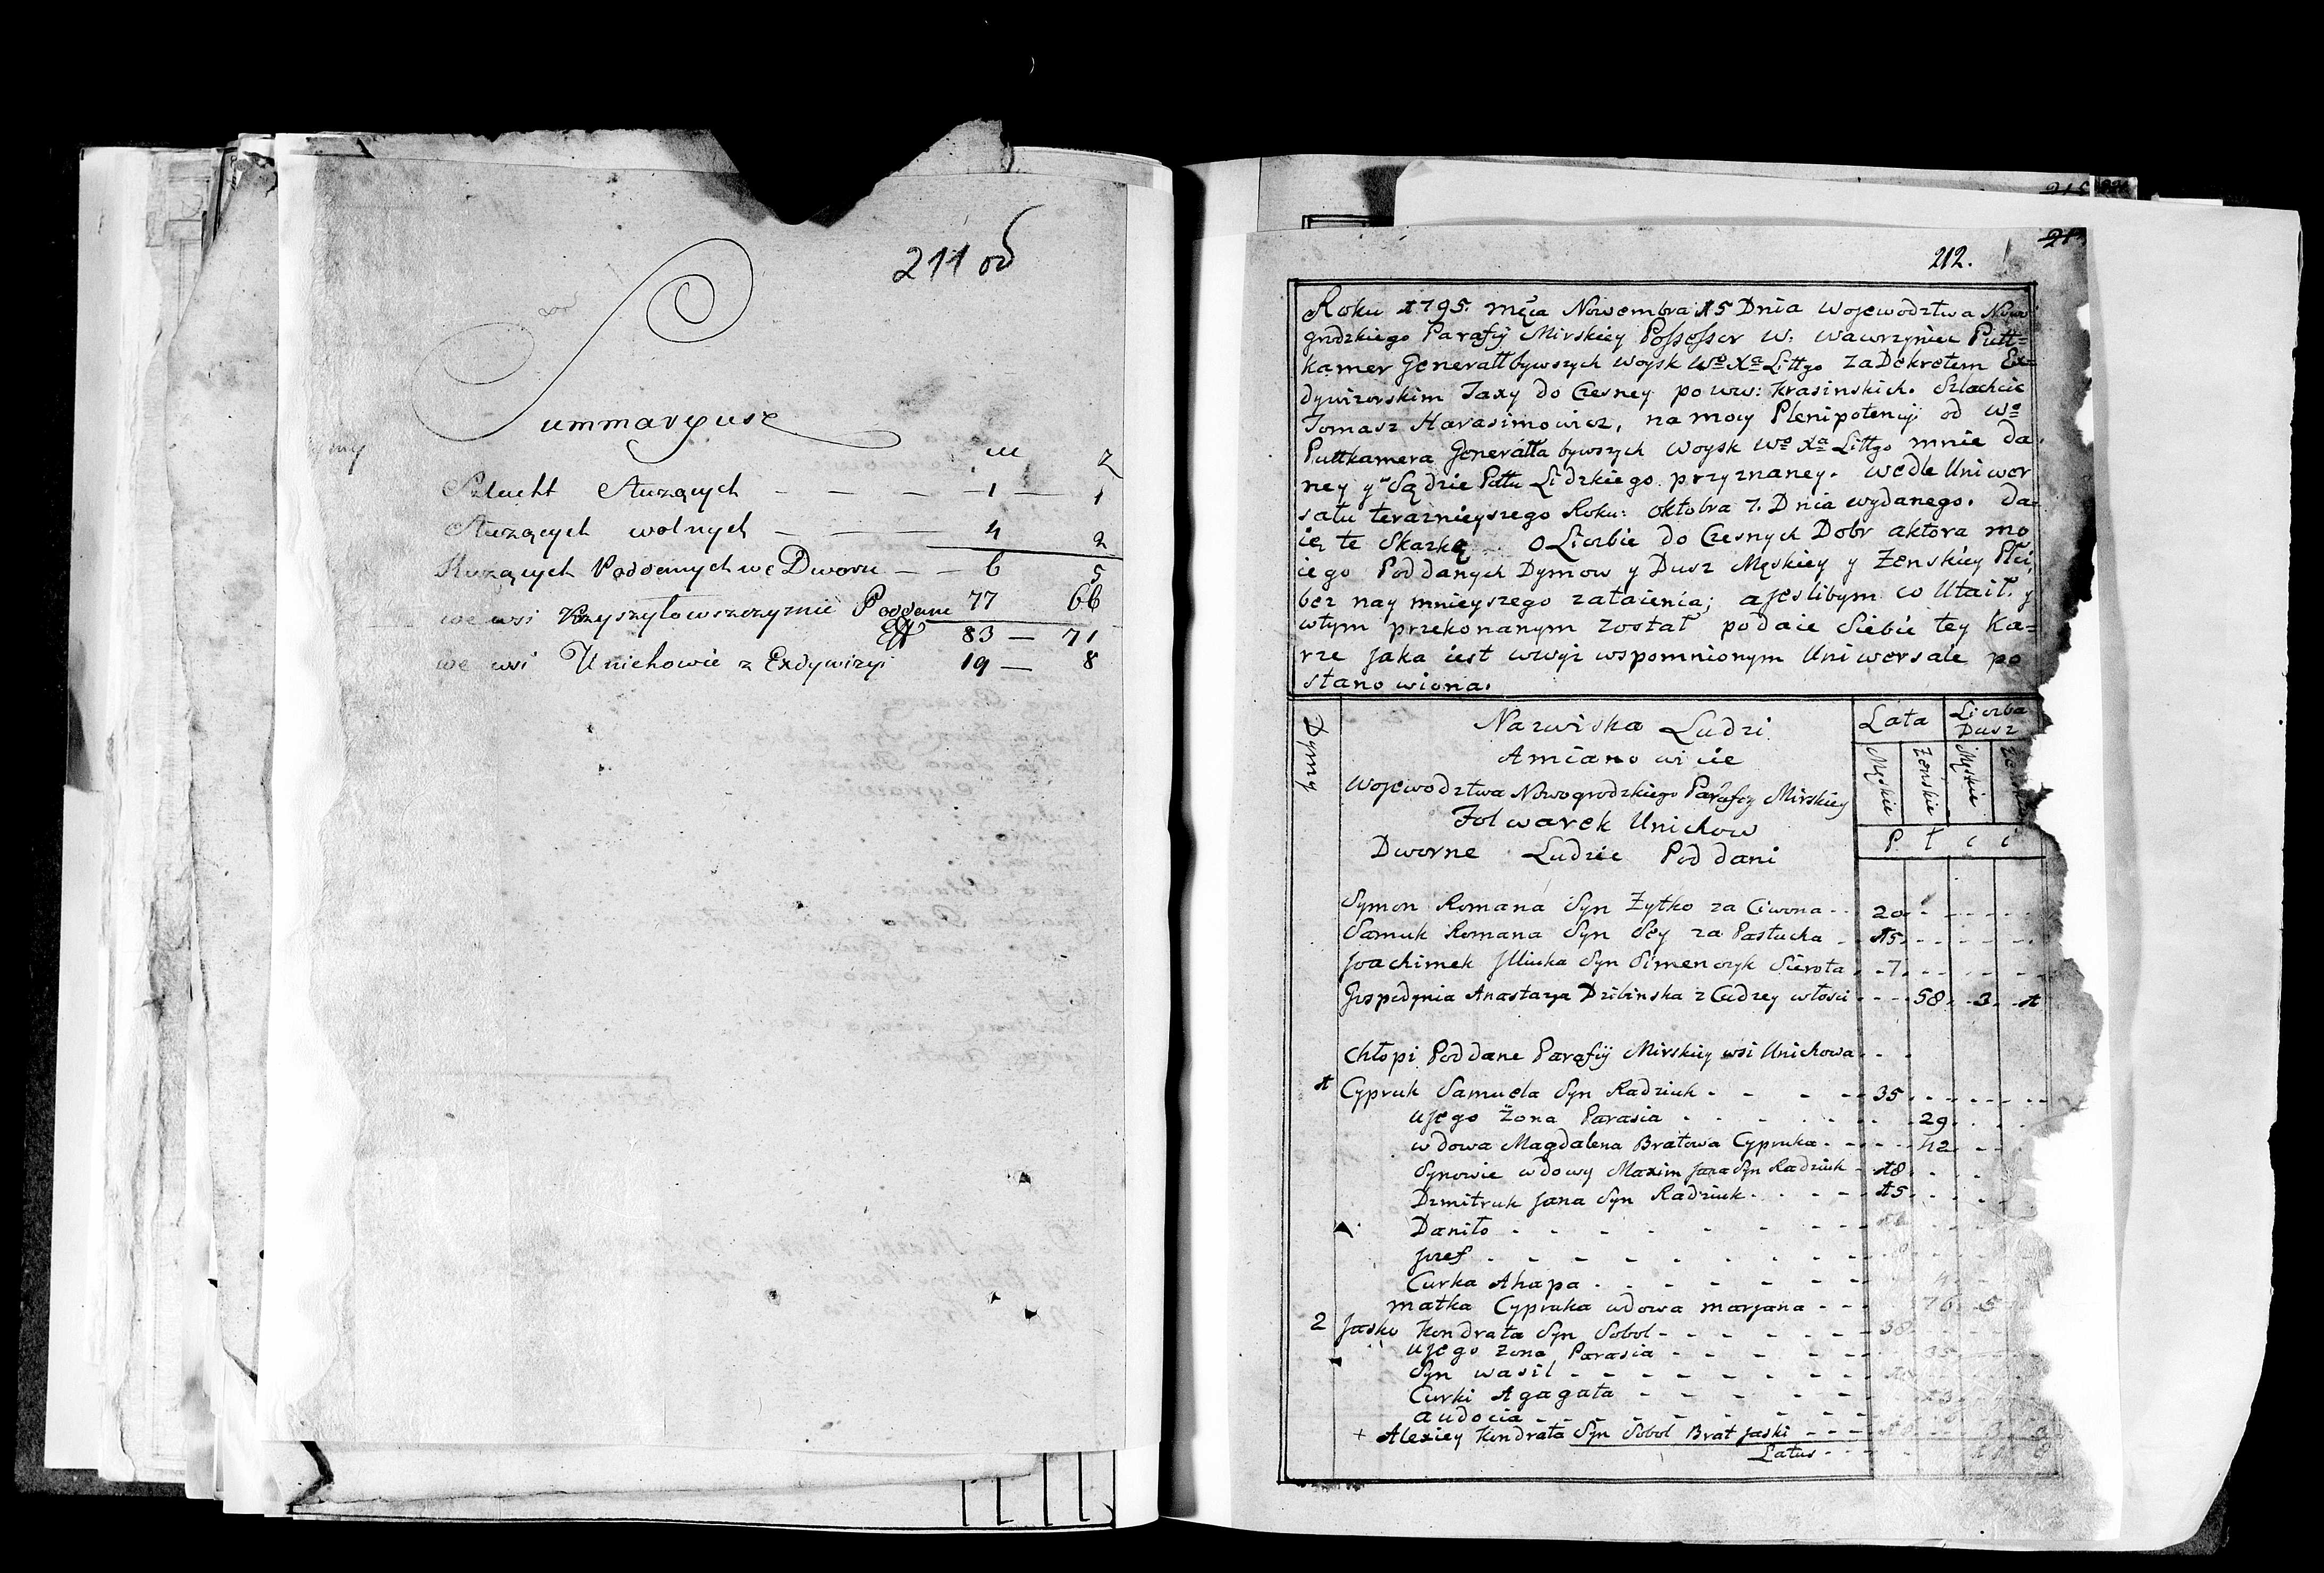 211 об
Summaryusz
M Z
Szlacht służących — — — 1 — 1
Służących wolnych — — 4 2
Służących Poddanych we Dworu — — 6 5
we wsi Krzyszyłowszczyznie Poddane 77 66
83 — 71
we wsi Uniehowie z Exdywizyi 19 — 8
212.
Roku 1795. męca Nowembra 15 Dnia Wojewodztwa Nowo
grodzkiego Parafij Mirskiey Possessor W: Wawrzyniec Putt=
kamer Generałł bywszych Woysk Wo Xa Littgo Za Dekretem Ex=
dywizorskim Taxy do Czesney po urw: Krasinskich. Szlachcic
Tomasz Harasimowicz, na mocy Plenipotencyi od Wo
Puttkamera Generałła bywszych Woysk Wo Xa Littgo mnie da
ney y Sądzie Pttu Lidzkiego przyznaney. wedle Uniwer
sału terazniejszego Roku: oktobra 7. Dnia wydanego. Da=
ię te Skazkę O Liczbie do Czesnych Dobr aktora mo
iego Poddanych Dymow y Dusz Męskiey y Zenskiey Płci,
bez nay mnieyszego zataienia; a jeslibym co Utaił. y
wtym przekonanym został podaie Siebie tey Ka=
rze jaka iest wwyż wspomnionym Uniwersale po
stanowiona.
Dymy
Nazwiska Ludzi
A mianowicie
Wojewodztwa Nowogrodzkiego Parafij Mirskiey
Folwarek Unichow
Dworne Ludzie Poddani
Lata
Liczba Dusz
Męskie
Zenskie
Męskie
P. ł c i
Symon Romana Syn Zytko za Ciwona - - 20
Samuk Romana Syn Séy za Pastucha - 15
Joachimek Jlliuka Syn Simenczyk Sierota - 7
Gospodynia Anastazya Dzibinska z Cudzey włosci - - - 58 - 3 - 1
Chłopi Poddane Parafij Mirskiey wsi Unichowa - -
1 Cypruk Samuela Syn Radziuk - - - - 35
u Jego Zona Parasia - - - 29
wdowa Magdalena Bratowa Cypruka - - - 42
Synowie wdowy Maxim Jana Syn Radziuk - 18
Dzmitruk Jana Syn Radziuk - - - 15
Daniło
Jozef
Curka Ahapa
matka Cypruka wdowa maryana - - - 76 5
2 Jasko Kondrata Syn Sobol - - - 38
u Jego zona Parasia - - - 35
Syn wasil
Curki Agagata - - - 13
audocia
+ Alexiey Kondrata Syn Sobol Brat Jaski
Latus